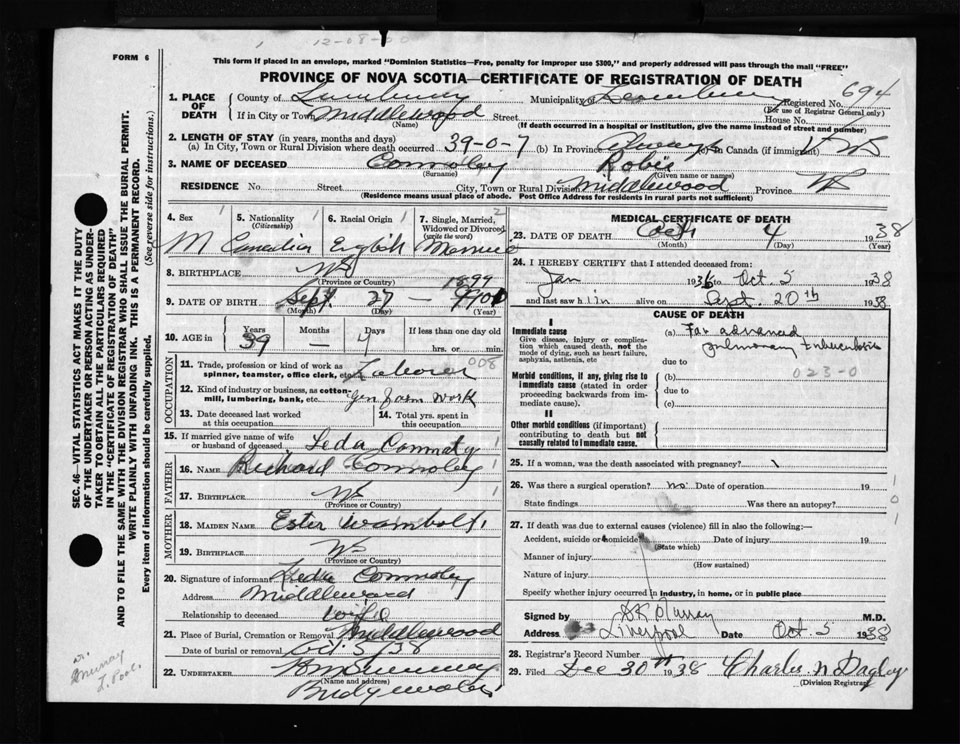 12-08-00
FORM 6
This form if placed in an envelope, marked "Dominion Statistics—Free, penalty for improper use $300," and properly addressed will pass through the mail "FREE"
PROVINCE OF NOVA SCOTIA—CERTIFICATE OF REGISTRATION OF DEATH
1. PLACE OF DEATH
County of Lunenburg Municipality of Lunenburg Registered No. 694
(For use of Registrar General only)
If in City or Town Middlewood Street House No.
(Name) (If death occurred in a hospital or institution, give the name instead of street and number)
2. LENGTH OF STAY (in years, months and days)
(a) In City, Town or Rural Division where death occurred 39-0-7 (b) In Province Always (c) In Canada (if immigrant)
3. NAME OF DECEASED Connoley Robie
(Surname) (Given name or names)
RESIDENCE No. Street City, Town or Rural Division Middlewood Province NS
(Residence means usual place of abode. Post Office Address for residents in rural parts not sufficient)
4. Sex 5. Nationality (Citizenship) 6. Racial Origin 7. Single, Married, Widowed or Divorced (write the word)
M Canadian English Married
8. BIRTHPLACE NS
(Province or Country)
1899
9. DATE OF BIRTH Sept. 27 —
(Month) (Day)
10. AGE in Years Months Days If less than one day old
39 — 7 hrs. or min.
OCCUPATION
11. Trade, profession or kind of work as spinner, teamster, office clerk, etc. Laborer 008
12. Kind of industry or business, as cotton-mill, lumbering, bank, etc. Gen farm work
13. Date deceased last worked at this occupation 14. Total yrs. spent in this occupation
15. If married give name of wife or husband of deceased Leda
FATHER
16. Name Richard Connoley
17. Birthplace NS
(Province or Country)
MOTHER
18. MAIDEN NAME Ester Wambolt
19. BIRTHPLACE NS
(Province or Country)
20. Signature of informant Leda Connoley
Address Middlewood
Relationship to deceased wife
21. Place of Burial, Cremation or Removal Middlewood
Date of burial or removal Oct. 5/38
22. UNDERTAKER
(Name and address)
Bridgewater
MEDICAL CERTIFICATE OF DEATH
23. DATE OF DEATH Oct 4 1938
(Month) (Day) (Year)
24. I HEREBY CERTIFY that I attended deceased from:
Jan 1936 to Oct. 5 1938
and last saw him alive on Sept. 20th 1938
CAUSE OF DEATH
I
Immediate cause
Give disease, injury or complication which caused death, not the mode of dying, such as heart failure, asphyxia, asthenia, etc
(a) Far advanced
pulmonary tuberculosis
due to
023-0
Morbid conditions, if any, giving rise to immediate cause (stated in order proceeding backwards from immediate cause).
(b)
due to
(c)
II
Other morbid conditions (if important) contributing to death but not causally related to immediate cause.
25. If a woman, was the death associated with pregnancy?
26. Was there a surgical operation? no Date of operation 19
State findings Was there an autopsy?
27. If death was due to external causes (violence) fill in also the following:—
Accident, suicide or homicide Date of injury 19
(State which)
Manner of injury
(How sustained)
Nature of injury
Specify whether injury occurred in industry, in home, or in public place
Signed by Murray M.D.
Address Liverpool Date Oct. 5 1938
28. Registrar's Record Number
29. Filed Dec 30th 1938 Charles N Dagley
(Division Registrar)
SEC. 46—VITAL STATISTICS ACT MAKES IT THE DUTY
OF THE UNDERTAKER OR PERSON ACTING AS UNDER-
TAKER TO OBTAIN ALL THE PARTICULARS REQUIRED
IN THE "CERTIFICATE OF REGISTRATION OF DEATH"
AND TO FILE THE SAME WITH THE DIVISION REGISTRAR WHO SHALL ISSUE THE BURIAL PERMIT.
WRITE PLAINLY WITH UNFADING INK. THIS IS A PERMANENT RECORD.
Every item of information should be carefully supplied. (See reverse side for instructions.)
Dr.
Murray
L.pool.